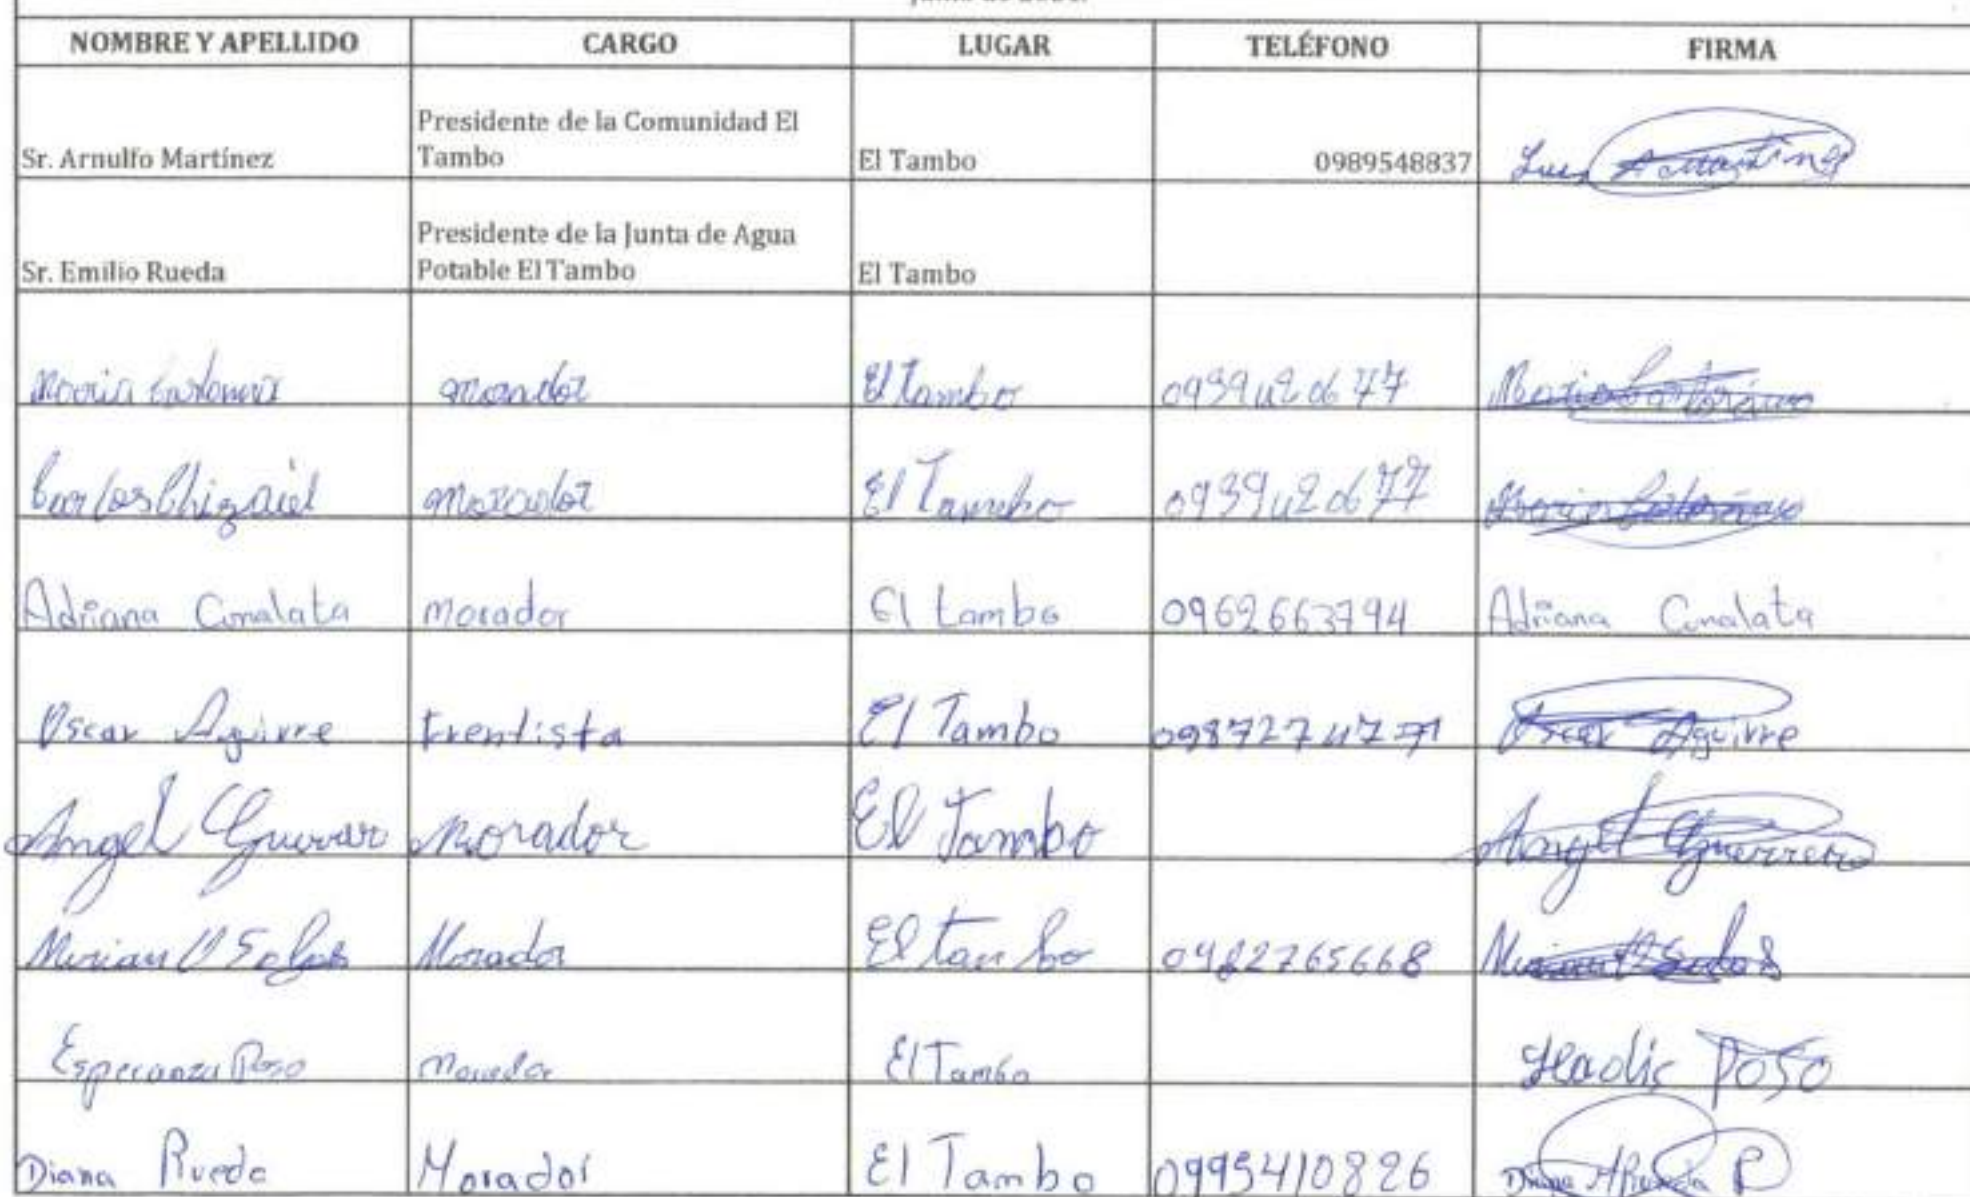 NOMBRE Y APELLIDO CARGO LUGAR TELÉFONO FIRMA
Sr. Arnulfo Martínez Presidente de la Comunidad El Tambo El Tambo 0989548837 Luis A Martínez
Sr. Emilio Rueda Presidente de la Junta de Agua Potable El Tambo El Tambo
morador El Tambo
Carlos morador El Tambo
Adriana Cumalata morador El tambo 0962663794 Adriana Cumalata
Oscar Aguirre frentista El Tambo Oscar Aguirre
Angel Guerrero Morador El Tambo Angel Guerrero
Mirian Salas Morador El tambo 0982765668 Mirian Salas
Esperanza Poso Morador El Tambo Poso
Diana Rueda Morador El Tambo 0995410826 Diana